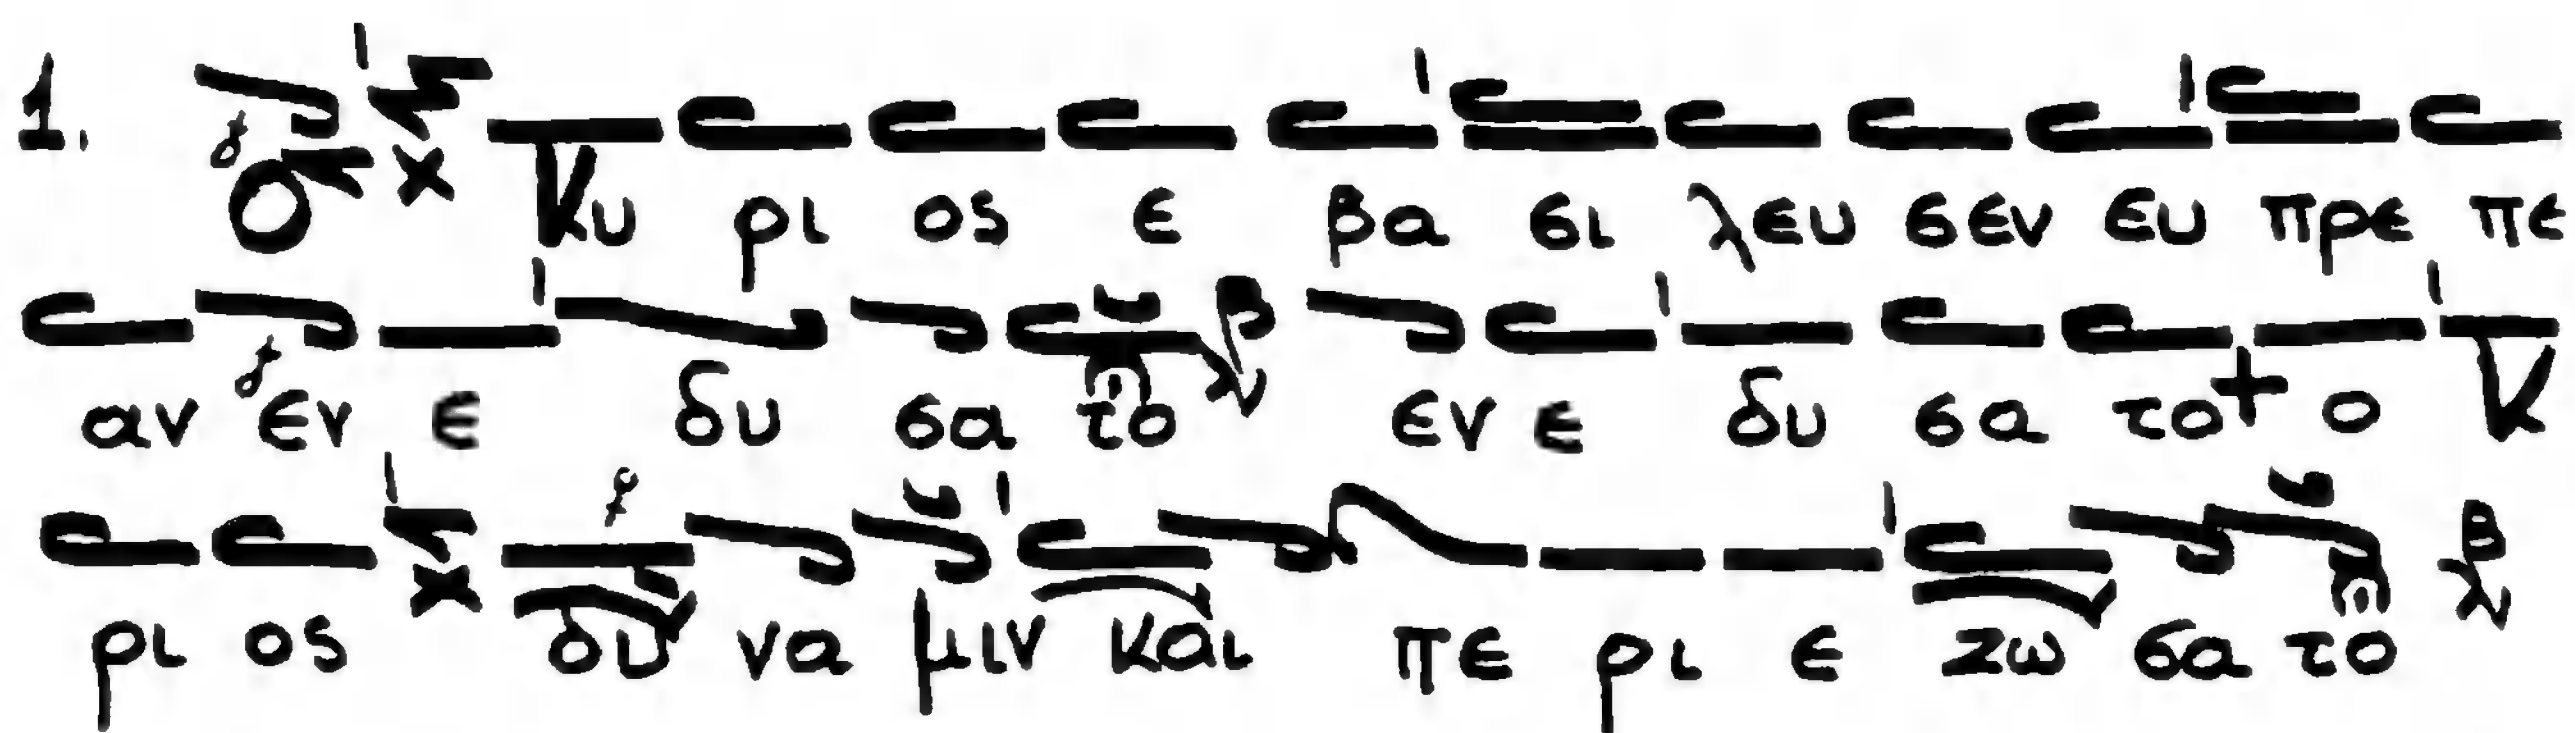 1. Ο Κυ ρι ος ε βα σι λευ σεν ευ πρε πε
αν εν ε δυ σα το εν ε δυ σα το + ο Κ
ρι ος δυ να μιν και πε ρι ε ζω σα το